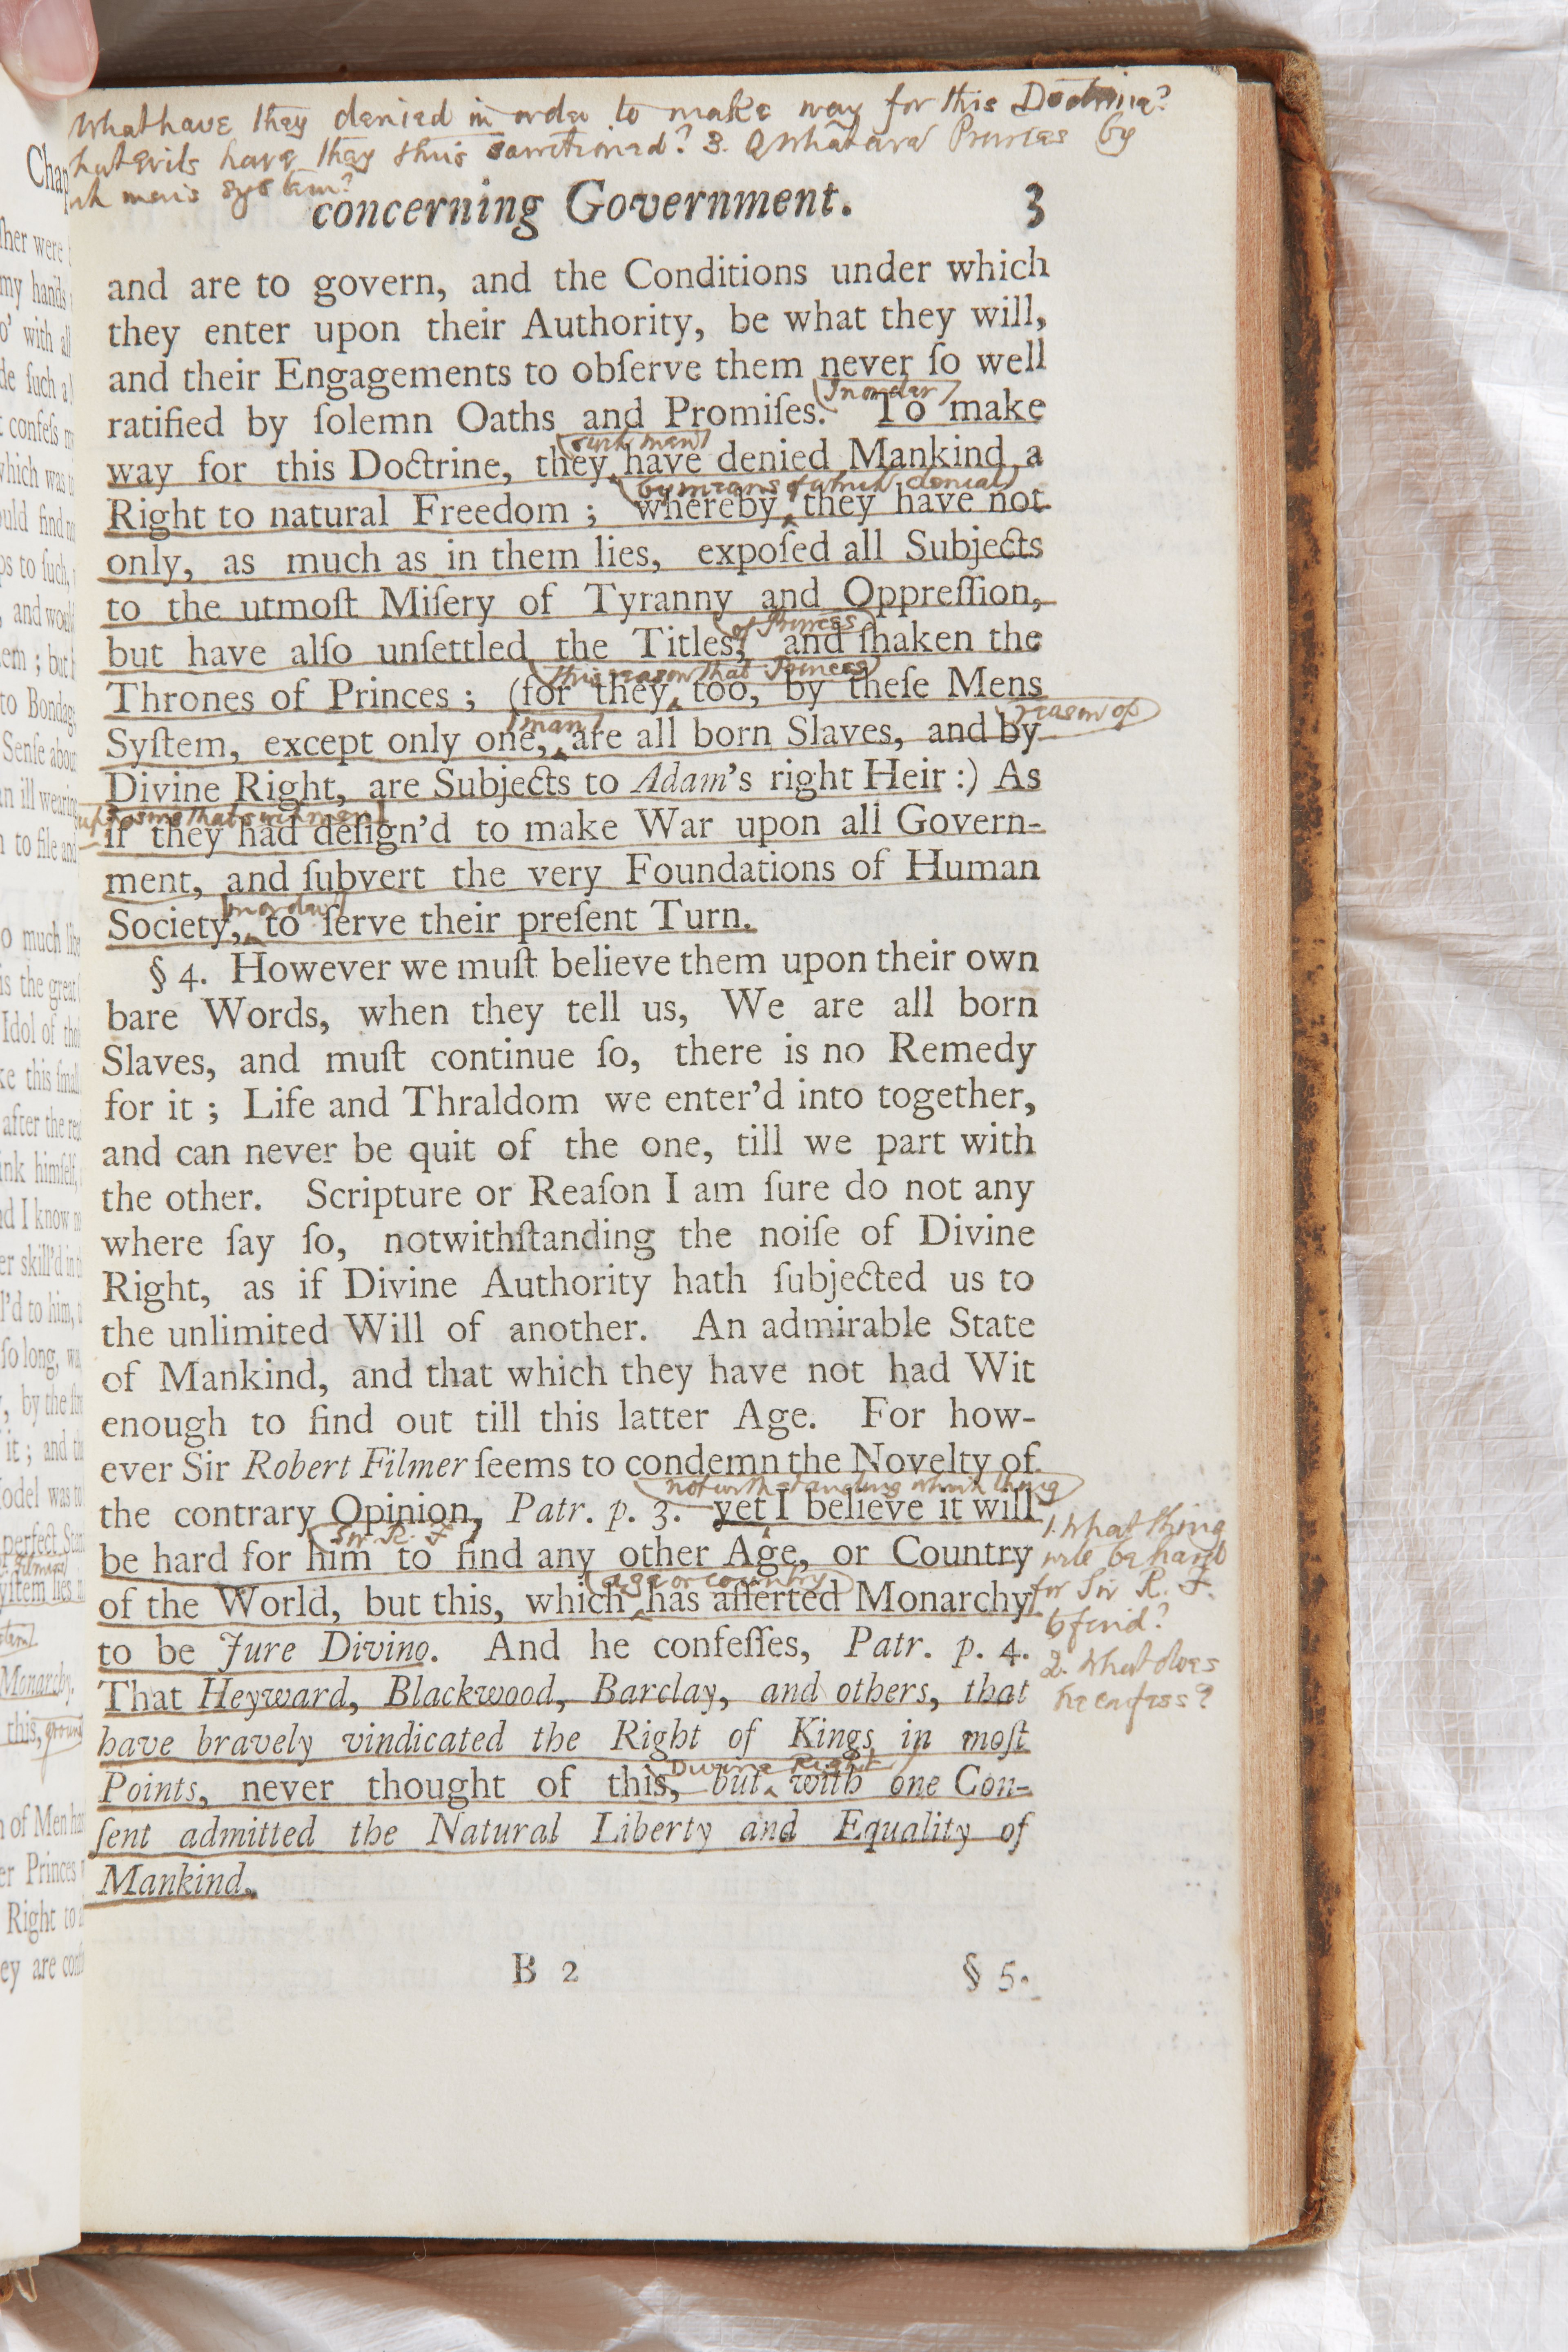 What have they denied in order to make way for this Doctrine?
hat evils have they thus sanctioned? 3. What are Princes by
ch men's system?
concerning Government. 3
and are to govern, and the Conditions under which
they enter upon their Authority, be what they will,
and their Engagements to obſerve them never ſo well
(In order)
ratified by ſolemn Oaths and Promiſes. To make
(such men)
way for this Doctrine, they have denied Mankind a
(by means of which denial)
Right to natural Freedom ; whereby they have not
only, as much as in them lies, expoſed all Subjects
to the utmoſt Miſery of Tyranny and Oppreſſion,
(of Princes)
but have alſo unſettled the Titles, and ſhaken the
(this reason that Princes)
Thrones of Princes ; (for they too, by theſe Mens
(man) (reason of)
Syſtem, except only one, are all born Slaves, and by
Divine Right, are Subjects to Adam's right Heir :) As
if they had deſign'd to make War upon all Govern-
ment, and ſubvert the very Foundations of Human
(in order)
Society, to ſerve their preſent Turn.
§ 4. However we muſt believe them upon their own
bare Words, when they tell us, We are all born
Slaves, and muſt continue ſo, there is no Remedy
for it ; Life and Thraldom we enter'd into together,
and can never be quit of the one, till we part with
the other. Scripture or Reaſon I am ſure do not any
where ſay ſo, notwithſtanding the noiſe of Divine
Right, as if Divine Authority hath ſubjected us to
the unlimited Will of another. An admirable State
of Mankind, and that which they have not had Wit
enough to find out till this latter Age. For how-
ever Sir Robert Filmer ſeems to condemn the Novelty of
(notwithstanding which thing)
the contrary Opinion, Patr. p. 3. yet I believe it will
(Sir R. F.)
be hard for him to find any other Age, or Country
(age or country)
of the World, but this, which has aſſerted Monarchy
to be Jure Divino. And he confeſſes, Patr. p. 4.
That Heyward, Blackwood, Barclay, and others, that
have bravely vindicated the Right of Kings in moſt
(Divine Right)
Points, never thought of this, but with one Con-
ſent admitted the Natural Liberty and Equality of
Mankind.
1. What thing
will be hard
for Sir R. F.
to find?
2. What does
he confess?
B 2 § 5.